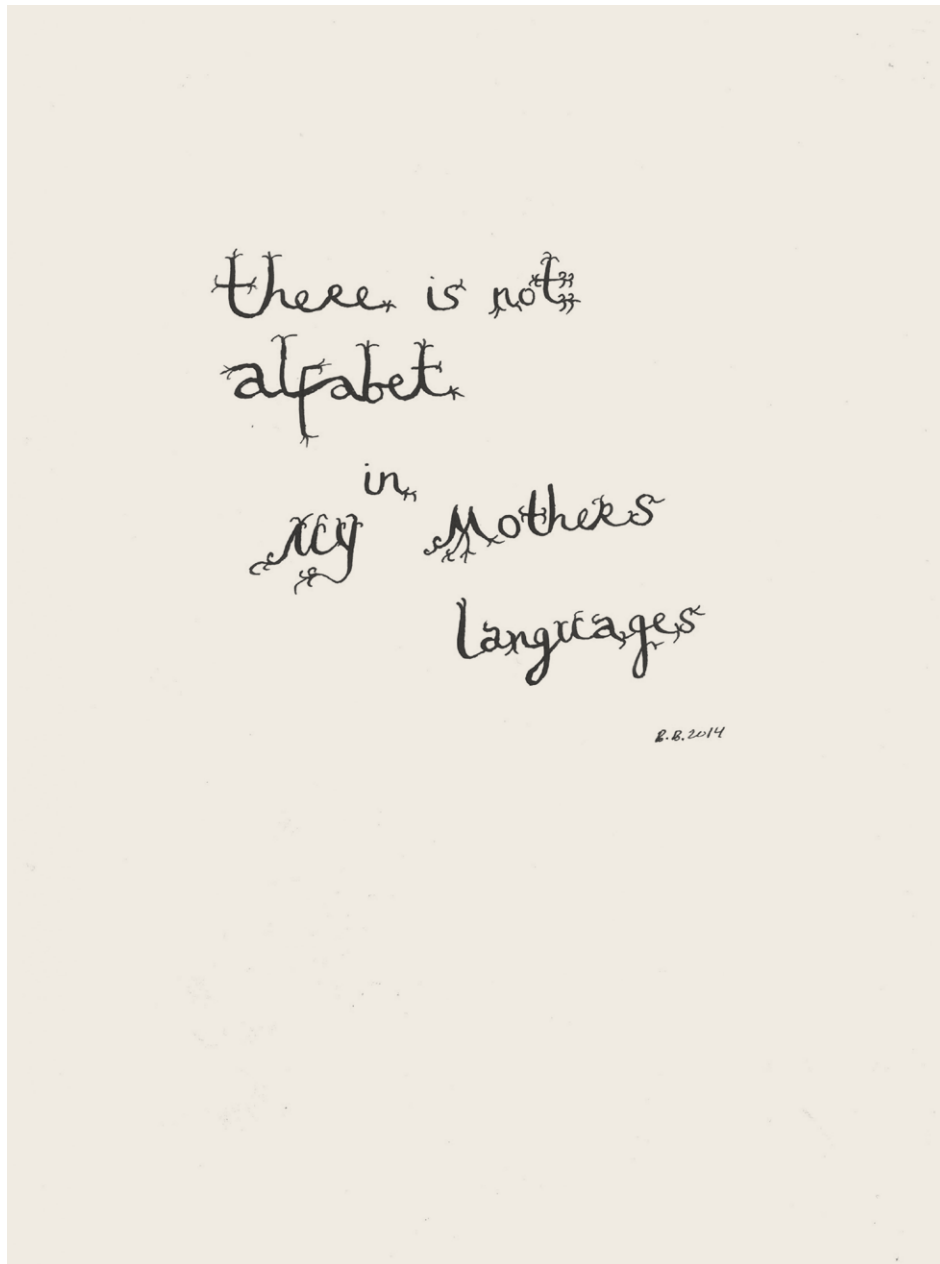 there is not
alfabet
in
My Mothers
languages
B.B. 2014